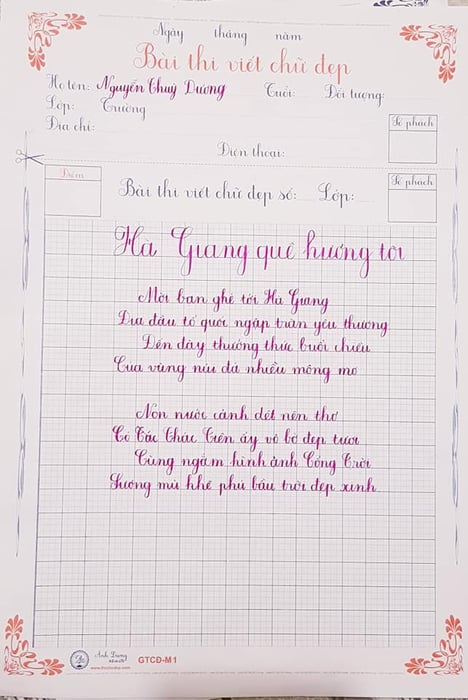 Ngày tháng năm
Bài thi viết chữ đẹp
Họ tên: Nguyễn Thuỳ Dương Tuổi: Đối tượng:
Lớp: Trường
Địa chỉ:
Số phách
Điện thoại:
Điểm
Bài thi viết chữ đẹp số: Lớp:
Số phách
Hà Giang quê hương tôi
Mời bạn ghé tới Hà Giang
Địa đầu tổ quốc ngập tràn yêu thương
Đến đây thưởng thức buổi chiều
Của vùng núi đá nhiều mộng mơ
Non nước cảnh dệt nên thơ
Có Tác Thác Tiên ấy vô bờ đẹp tươi
Cùng ngắm hình ảnh Cổng Trời
Sương mù khẽ phủ bầu trời đẹp xinh
Ánh Dương
GTCĐ-M1